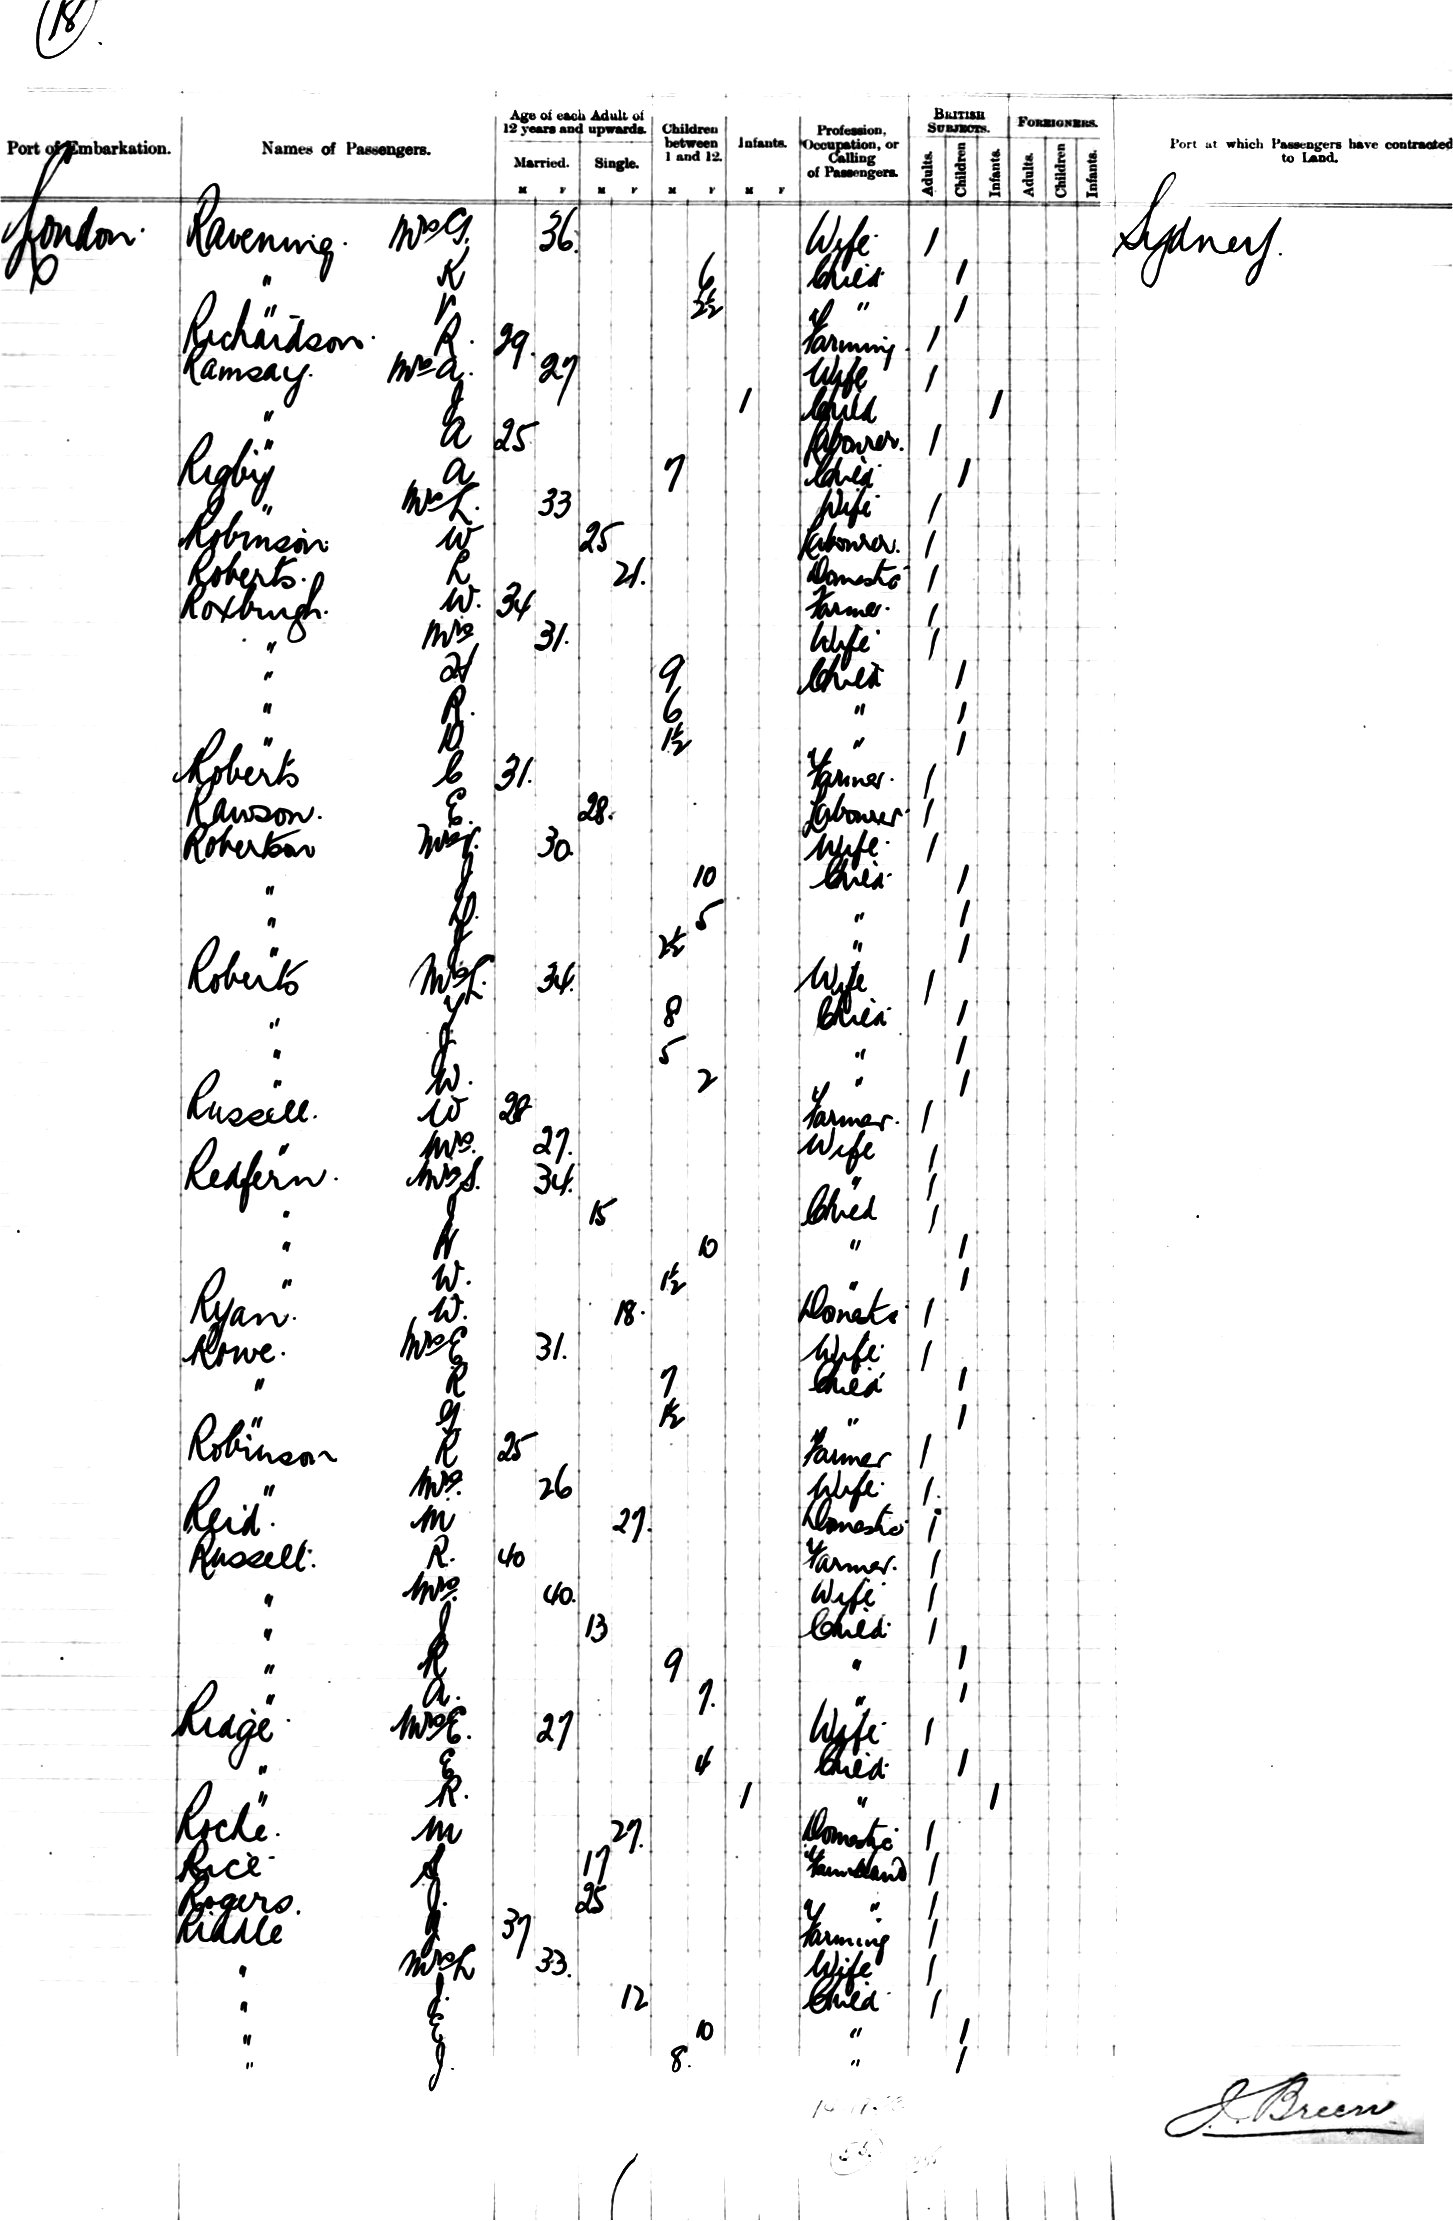 18
Port of Embarkation. Names of Passengers. Age of each Adult of 12 years and upwards. Children between 1 and 12. Infants. Profession, Occupation, or Calling of Passengers. British Subjects. Foreigners. Port at which Passengers have contracted to Land.
Married. Single. Adults. Children Infants. Adults. Children Infants.
M F M F M F M F
London. Ravening. Mrs G. 36. Wife 1 Sydney.
" K 6 Child 1
" V 2½ " 1
Richardson. R. 29. Farming. 1
Ramsay. Mrs A. 27 Wife 1
" J 1 Child 1
" A 25 Labourer. 1
Rigby A 7 Child 1
" Mrs L. 33 Wife 1
Robinson. W 25 Labourer. 1
Roberts. L 21. Domestic 1
Roxburgh. W. 34 Farmer. 1
" Mrs 31. Wife 1
" H 9 Child 1
" R. 6 " 1
" D 1½ " 1
Roberts C 31. Farmer. 1
Rawson. E. 28. Labourer 1
Robertson Mrs 30. Wife. 1
" J 10 Child 1
" 5 " 1
" J 2½ " 1
Roberts Mrs L. 34. Wife 1
" Y 8 Child 1
" J. 5 " 1
" W. 2 " 1
Russell. W 28 Farmer. 1
" Mrs. 27. Wife 1
Redfern. Mrs S. 34. " 1
" J 15 Child 1
" N 10 " 1
" W. 1½ " 1
Ryan. W. 18. Domestic 1
Rowe. Mrs E. 31. Wife. 1
" R 7 Child 1
" G 1½ " 1
Robinson R 25 Farmer 1
" Mrs. 26 Wife. 1.
Reid. M 27. Domestic 1
Russell. R. 40 Farmer. 1
" Mrs. 40. Wife 1
" J 13 Child. 1
" R 9 " 1
" A. 7. " 1
Ridge. Mrs E. 27 Wife. 1
" E 4 Child. 1
" R. 1 " 1
Roche. M 27. Domestic 1
Rice S 17 Farmhand 1
Rogers. J. 25 " 1
Riddle J 37 Farming 1
" Mrs L 33. Wife 1
" J. 12 Child 1
" E 10 " 1
" J. 8. " 1
J. Breen